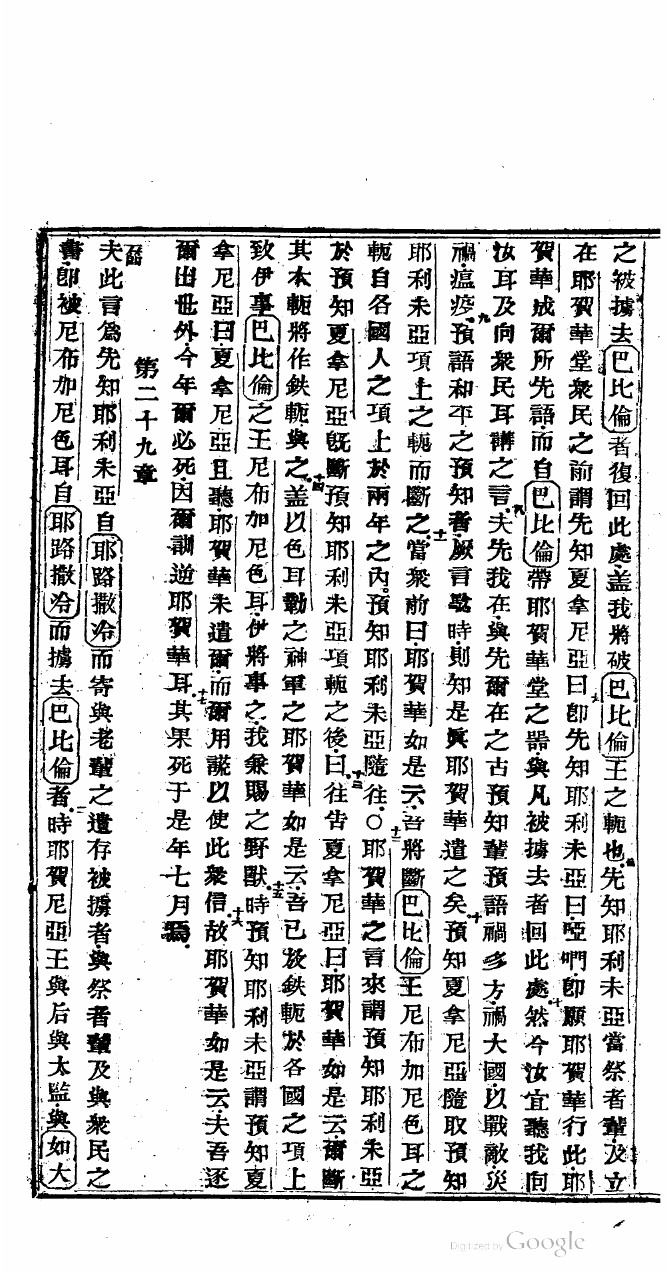 之被擄去巴比倫者復回此處盖我將破巴比倫王之軛也五先知耶利未亞當祭者輩及立
在耶賀華堂衆民之前謂先知夏拿尼亞曰六卽先知耶利未亞曰啞㖿卽願耶賀華行此耶
賀華成爾所先語而自巴比倫帶耶賀華堂之器與凡被擄去者回此處七然今汝宜聽我向
汝耳及向衆民耳講之言八夫先我在與先爾在之古預知輩預語禍多方禍大國以戰敵災
禍瘟疫九預語和平之預知者厥言騐時則知是眞耶賀華遣之矣十預知夏拿尼亞隨取預知
耶利未亞項上之軛而斷之十一當衆前曰耶賀華如是云吾將斷巴比倫王尼布加尼色耳之
軛自各國人之項上於兩年之內預知耶利未亞隨往〇十二耶賀華之言來謂預知耶利未亞
於預知夏拿尼亞旣斷預知耶利未亞項軛之後曰十三往告夏拿尼亞曰耶賀華如是云爾斷
其木軛將作鉄軛與之十四盖以色耳勒之神軍之耶賀華如是云吾已放鉄軛於各國之項上
致伊事巴比倫之王尼布加尼色耳伊將事之我兼賜之野獸十五時預知耶利未亞謂預知夏
拿尼亞曰夏拿尼亞且聽耶賀華未遣爾而爾用謊以使此衆信十六故耶賀華如是云夫吾逐
爾出世外今年爾必死因爾訓逆耶賀華耳十七其果死于是年七月焉
第二十九章
夫此言爲先知耶利未亞自耶路撒冷而寄與老輩之遺存被擄者與祭者輩及與衆民之
書卽被尼布加尼色耳自耶路撒冷而擄去巴比倫者二時耶賀尼亞王與后與太監與如大
Digitized by Google